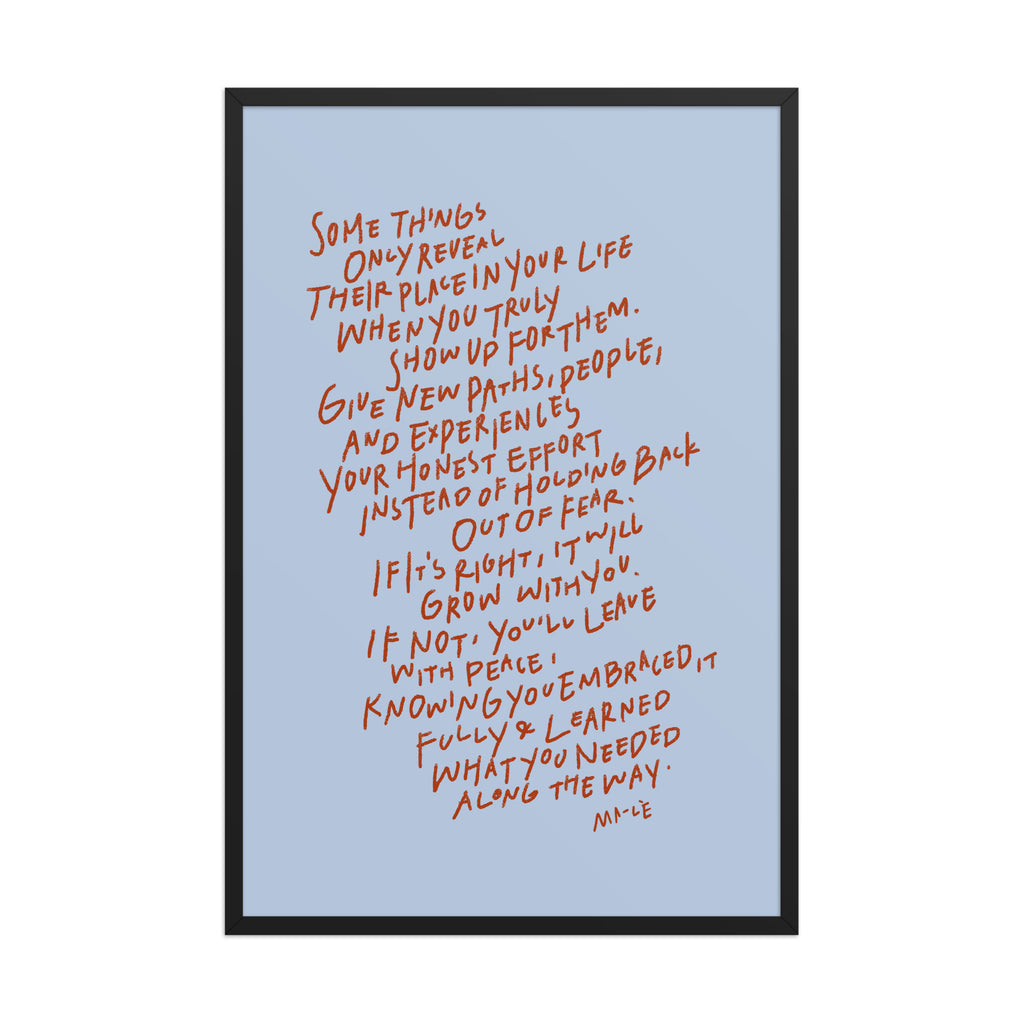 SOME THINGS
ONLY REVEAL
THEIR PLACE IN YOUR LIFE
WHEN YOU TRULY
SHOW UP FOR THEM.
GIVE NEW PATHS, PEOPLE,
AND EXPERIENCES
YOUR HONEST EFFORT
INSTEAD OF HOLDING BACK
OUT OF FEAR.
IF IT'S RIGHT, IT WILL
GROW WITH YOU.
IF NOT, YOU'LL LEAVE
WITH PEACE,
KNOWING YOU EMBRACED IT
FULLY & LEARNED
WHAT YOU NEEDED
ALONG THE WAY.
MA-LÈ